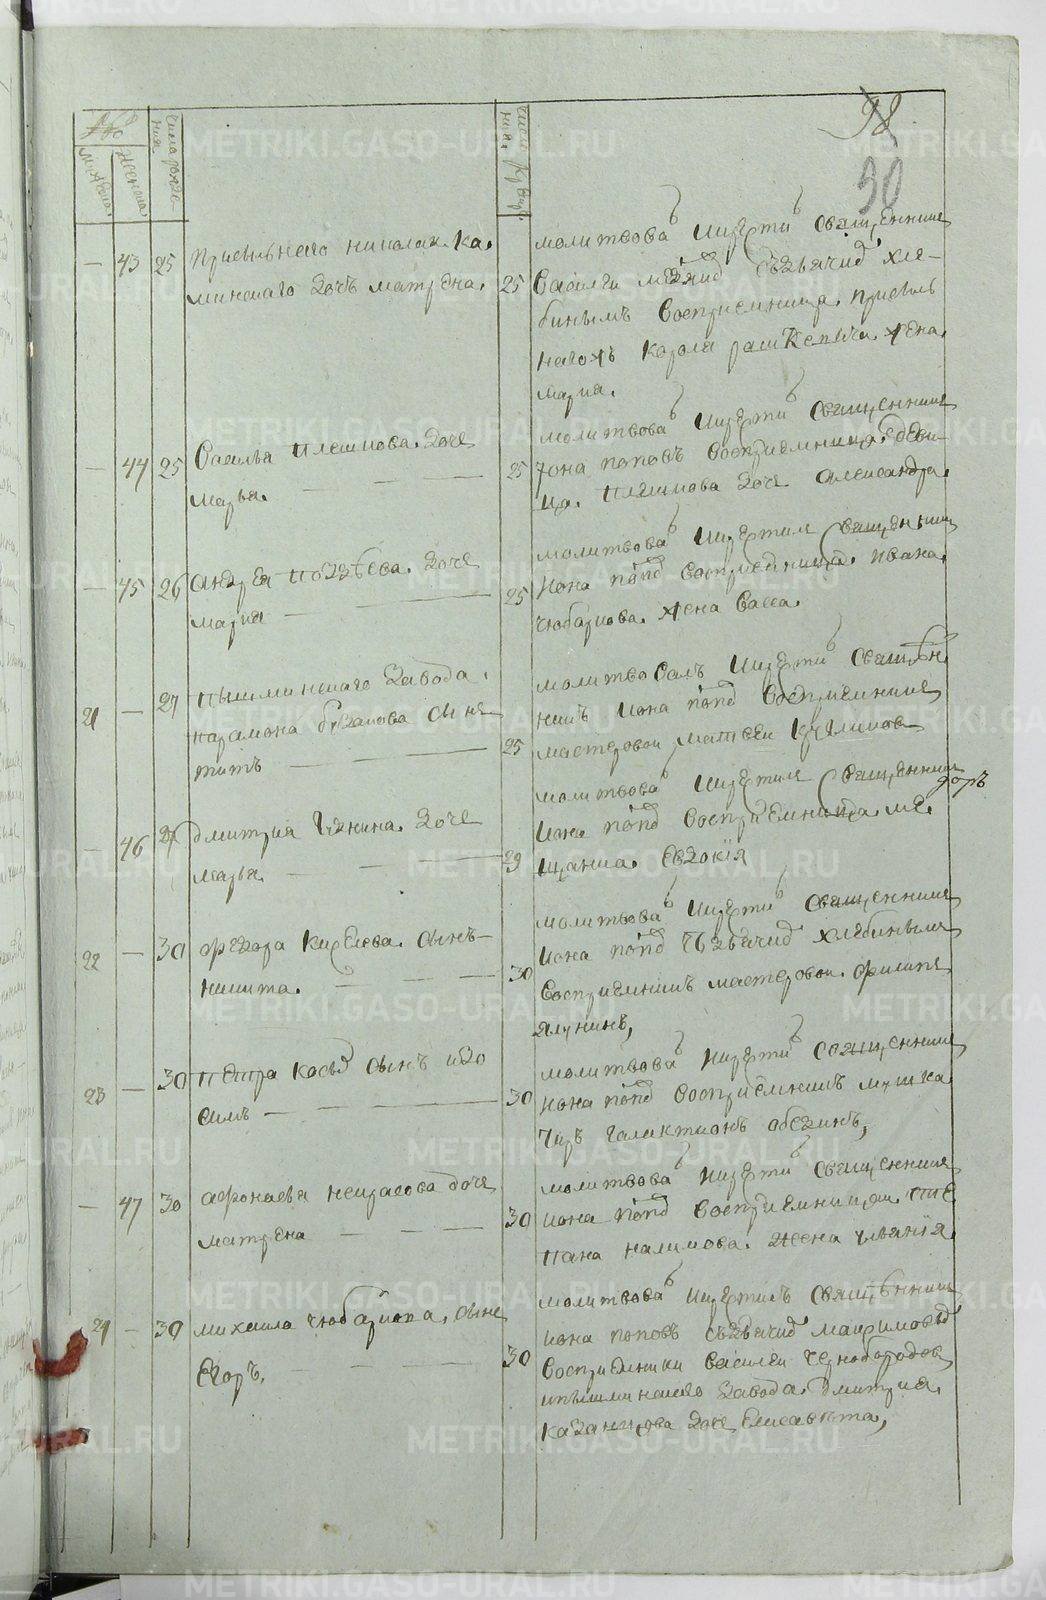 98
90
мужеска
женска
число рожде
ния
число крещ
ния
43 25 Николая Ка
минскаго дочь матрена.
25
молитвова и крести священник
Василеи
бинымъ восприемница
Карола жена
мария.
44 25 Василья Плешкова дочь
марья.
25
молитвова и крести священник
Иона поповъ восприемница деви
ца Плешкова дочь александра
45 26 Андрея Поздеева дочь
мария
25
молитвова и крестил священник
Иона попов восприемница ивана
чюбаркова жена васса.
21 27 Пышминскаго завода
парамона бузакова сынъ
титъ
25
молитвовалъ и крести священ
никъ Иона попов восприемник
мастеровои матвеи
46 27 дмитрия дочь
марья
29
молитвова и крестил священник
Иона попов восприемница ме
щанка Евдокия
22 30 федора Кирѣева сынъ
никита.
30
молитвова и крести священник
Иона попов з дьячком хлебиным
восприемникъ мастеровои филипъ
Ялунинъ,
23 30 Петра сынъ изо
симъ
30
молитвова и крести священник
Иона попов восприемникъ мушка
тиръ галактионъ
47 30 афонасья некрасова дочь
матрена
30
молитвова и крести священник
Иона попов восприемница сте
пана налимова жена ульяния
24 30 михаила чюбаркова, сынъ
Егоръ.
30
молитвова и крестилъ священник
Иона поповъ з дьячком максимовым
восприемники василеи чернобородов
и пышминскаго завода дмитрия
казанцова дочь Елисавета,
METRIKI.GASO-URAL.RU